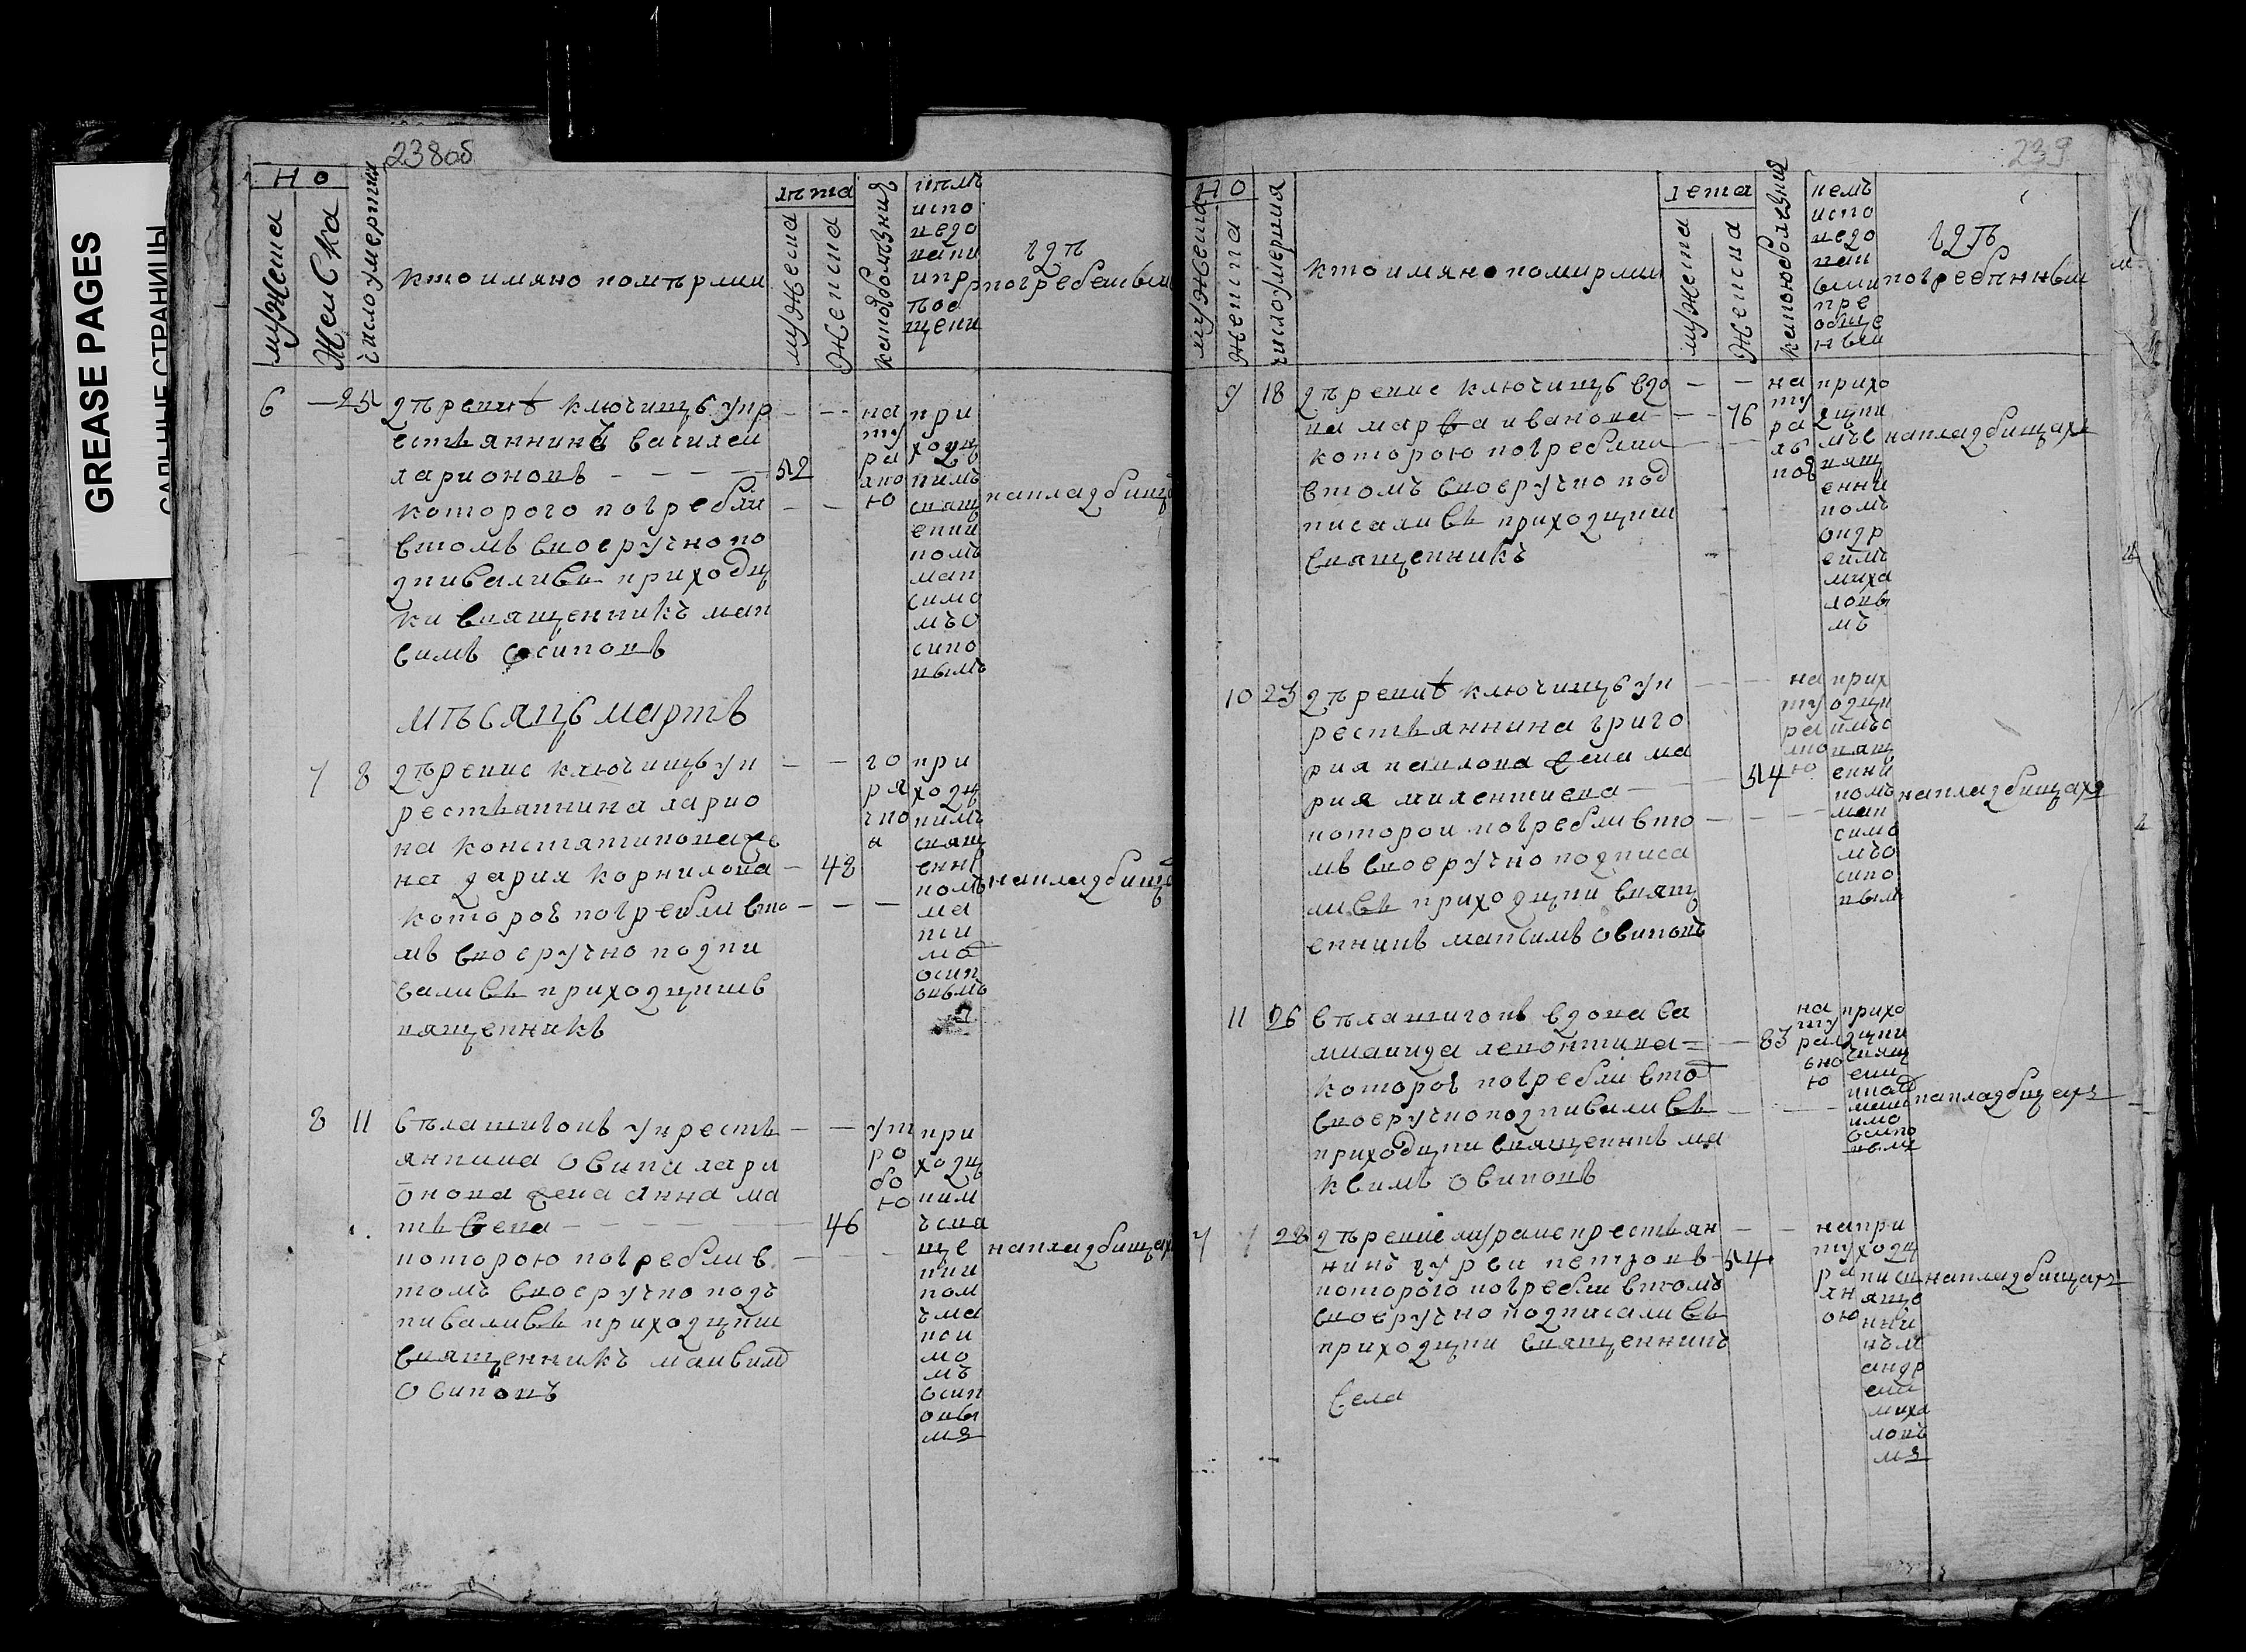 GREASE PAGES
САЛЬНЫЕ СТРАНИЦЫ
238об
но
мужеска
женска
число умертия
кто имяно помѣрли
лѣта
мужеска
женска
какою болѣзния
кѣмъ
испо
ведо
вани
и пр
ѣоб
щени
гдѣ
погребены
6
25
дѣревнѣ ключищь у кр
естьяннинъ василеи
ларионовъ
52
которого погребли
в томъ своеручно по
дписались приходц
ки священникъ мак
симъ осиповъ
на
ту
ра
лно
ю
при
ходц
кимъ
свящ
енни
комъ
мак
симо
мъ о
сипо
вымъ
на кладбищ
мѣсяць мартъ
7
8
дѣревнѣ ключищь у к
рестьяннина ларио
на констатинова же
на дария корнилова
48
которою погребли в то
мъ своеручно подпи
сались приходцки с
вященникъ
го
ря
чко
а
при
ходц
кимъ
свящ
енн
комъ
ма
кси
мо
осип
овымъ
на кладбищ
8
11
сѣла шигонъ у кресть
яннина осипа лари
онова жена анна ма
тьвеева
46
которою погребли в
томъ своеручно подъ
писались приходцки
священникъ максимъ
осиповъ
ут
ро
бо
ю
при
ходц
ким
ъ свя
ще
нни
ком
ъ ма
кси
мо
мъ
осип
овы
мъ
на кладбищах
239
но
мужеска
женска
число умерния
кто имяно помирли
лета
мужеска
женска
какою болезния
кемъ
испо
ведо
ван
выи
пре
обще
нны
гдѣ
погребѣнны
9
18
дѣревнѣ ключищь вдо
ва марфа иванова
76
которою погребли
в томъ своеручно под
писались приходцки
священникъ
на
ту
ра
ль
ною
прихо
дцки
мъ с
вящ
енни
комъ
андр
еимъ
миха
ловы
мъ
на кладбищахъ
10
23
дѣревнѣ ключищь у к
рестьяннина григо
рия павлова жена ма
рия милентиева
54
которои погребли в то
мъ своеручно подписа
лись приходцки свящ
енникъ максимъ осиповъ
на
ту
ра
лно
ю
прих
одцк
имъ с
вящ
енни
комъ
мак
симо
мъ о
сипо
вым
на кладбищахъ
11
26
сѣла шигонъ вдова са
манида леонтиева
83
которою погребли в том
своеручно подписались
приходцки священникъ ма
ксимъ осиповъ
на
ту
рал
ьно
ю
прихо
дцки
свящ
енн
иком
макс
имо
осипо
вым
на кладбищахъ
7
28
дѣревнѣ муране крестьян
нинъ гуреи петровъ
54
которого погребли в томъ
своеручно подписались
приходцки священникъ
села
на
ту
ра
лн
ою
при
ходц
ки св
яще
нни
към
андр
еи
миха
ловы
мъ
на кладбищахъ